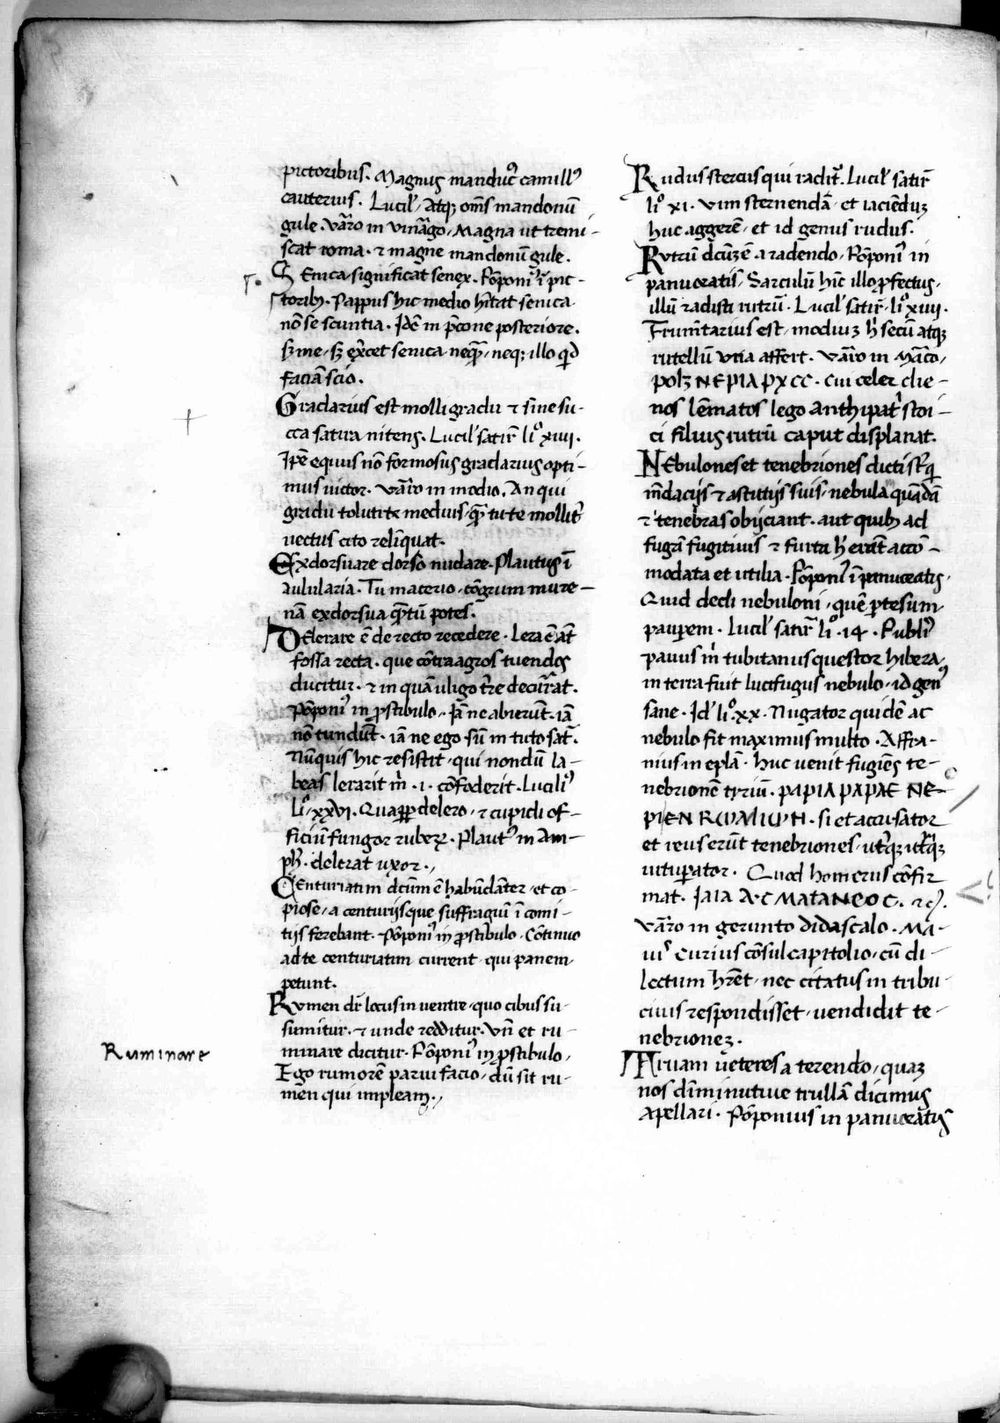 pictoribus. Magnus manducꝰ camillꝰ
cauterius. Lucil̓. Atqꝫ om̄s mandonū
gule. Vārro in Vināgo. Magna ut tremi-
scat roma. ⁊ magne mandonū gule.
SEnica significat senex. Pōponiꝰ ī pic-
toribꝫ. Pappus hic medio hītat senica
nō se scuntia. Idē in p̄cone posteriore.
sꝫ me. sꝫ excet senica neqꝫ. neqꝫ illo qd
faciā scio.
Gradarius est molli gradu ⁊ sine su-
cca satura nitens. Lucil̓ satir̄ liº xiiii.
Ip̄e equus nō formosus gradarius opti-
mus uictor. Vārro in modio. An qui
gradu tolutite medius. q̄ tute molliter
uectus cito relīquat.
Exdorsuare dorso nudare. Plautus ī
aulularia. Tu macerio. cōgrum mure-
nā exdorsua q̄tū potes.
DElerare ē de recto recedere. Lera ē āt
fossa recta. que cōtra agros tuendos
ducitur. ⁊ in quā uligo tr̄e decurrat.
Pōponiꝰ in p̄stibulo. Iā ne abierūt. iā
nō tundūt. iā ne ego sū in tuto sat̄.
Nūquis hic resistit. qui nondū la-
beas lerarit m̄. i. cōfoderit. Luciliꝰ
Liº xxvi. Quapp̄ delero. ⁊ cupidi of-
ficiū fungor ruberꝝ. Plautꝰ in Am-
ph̄. delerat uxor.
CEnturiatim dc̄um ē habūdāter. et co-
piose. a centurijs que suffragiū ī comi-
tijs ferebant. Pōponiꝰ in p̄stibulo. Cōtinuo
ad te centuriatim current qui panem
petunt.
Rumen dr̄ locus in uentre. quo cibus su-
sumitur. ⁊ unde redditur. Vn̄ et ru-
minare dicitur. Pōponiꝰ in p̄stibulo.
Ego rumorē parui facio. dū sit ru-
mēn qui impleam.
Ruminare
Rudus stercus qui radit. Lucil̓ satir̄
liº xi. Vim sternendā. et iaciēduꝫ
huc aggerē. et id genus rudus.
Rutrū dc̄um ē. a radendo. Pōponiꝰ in
panuceatis. Sarculū hīc illo p̄fectus.
illū radisti rutrū. Lucil̓ satir̄. liº xviii.
Frum̄tarius est. modiuꝫ h̄ secū atqꝫ
rutellū una affert. Vārro in Mārco
polꝫ ΝΕΡΙΑΡΧCC. cui celer die-
nos lēmatos lego anthipat̄ stoi-
ci filius rutrū caput displanat.
NEbulones et tenebriones dicti st̄ q̄
m̄dacijs ⁊ astutijs suis. nebula quādā
⁊ tenebras obijciant. aut quibꝫ ad
fugā fugitiuis ⁊ furta h̄ erāt accō-
modata et utilia. Pōponiꝰ ī panuceatis.
Quid dedi nebuloni. quē p̄tesum
pauperem. Lucil̓ satir̄ liº. 14. Publiꝰ
pauus m̄ tubitanus questor hibera,
in terra fuit lucifugus nebulo. id genꝰ
sane. Id̄ liº. xx. Nugator quidē ac
nebulo fit maximus multo. Affra-
nius in eplā. huc venit fugiēs te-
nebrionē tyriū. ΡΑΡΙΑ ΡΑΡΑΕ ΝΕ-
ΡΙΕΝRωΜΙωΝ. si et accusator
et reus erūt tenebriones. utqꝫ utqꝫ
uituperator. Quod homerus cōfir
mat. ΙΑΙΑ Α·C ΜΑΤΑΝΕΟC. ⁊c̄.
Vārro in gerunto didascalo. Ma-
uiꝰ Curius cōsul capitolio. cū di-
lectum hr̄et. nec citatus in tribu
ciuis respondisset. uendidit te-
nebrionez.
TRuam ueteres a terendo. quaꝫ
nos dīminutiue trullā dicimus
apellari. Pōponius in panuceatis